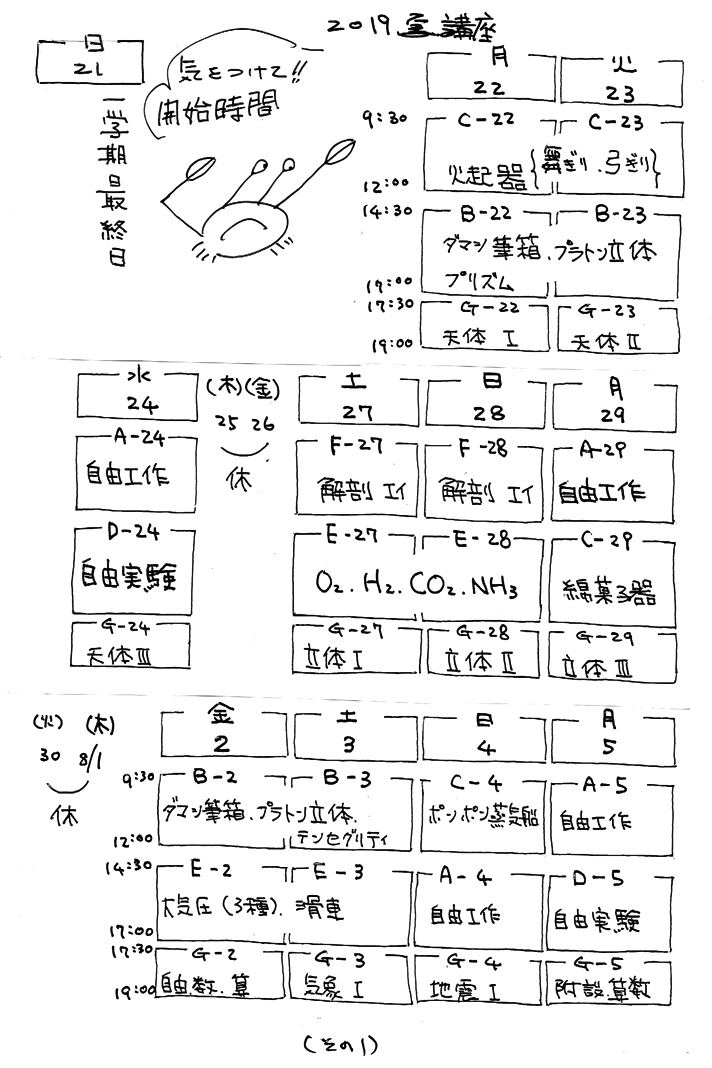 2019 夏 講座
日
21
一学期最終日
気をつけて!!
開始時間
月 火
22 23
9:30 C-22 C-23
火起器{舞ぎり、弓ぎり}
12:00
14:30 B-22 B-23
ダマシ筆箱、プラトン立体
プリズム
17:00
17:30 G-22 G-23
天体 I 天体 II
19:00
水 (木)(金) 土 日 月
24 25 26 27 28 29
休
A-24 F-27 F-28 A-29
自由工作 解剖 エイ 解剖 エイ 自由工作
D-24 E-27 E-28 C-29
自由実験 O2. H2. CO2. NH3 綿菓子器
G-24 G-27 G-28 G-29
天体III 立体I 立体II 立体III
(火) (木) 金 土 日 月
30 8/1 2 3 4 5
休
9:30 B-2 B-3 C-4 A-5
ダマシ筆箱、プラトン立体、 ポンポン蒸気船 自由工作
テンセグリティ
12:00
14:30 E-2 E-3 A-4 D-5
大気圧(3種)、滑車 自由工作 自由実験
17:00
17:30 G-2 G-3 G-4 G-5
自由.数.算 気象I 地震I 附設.算数
19:00
(その1)